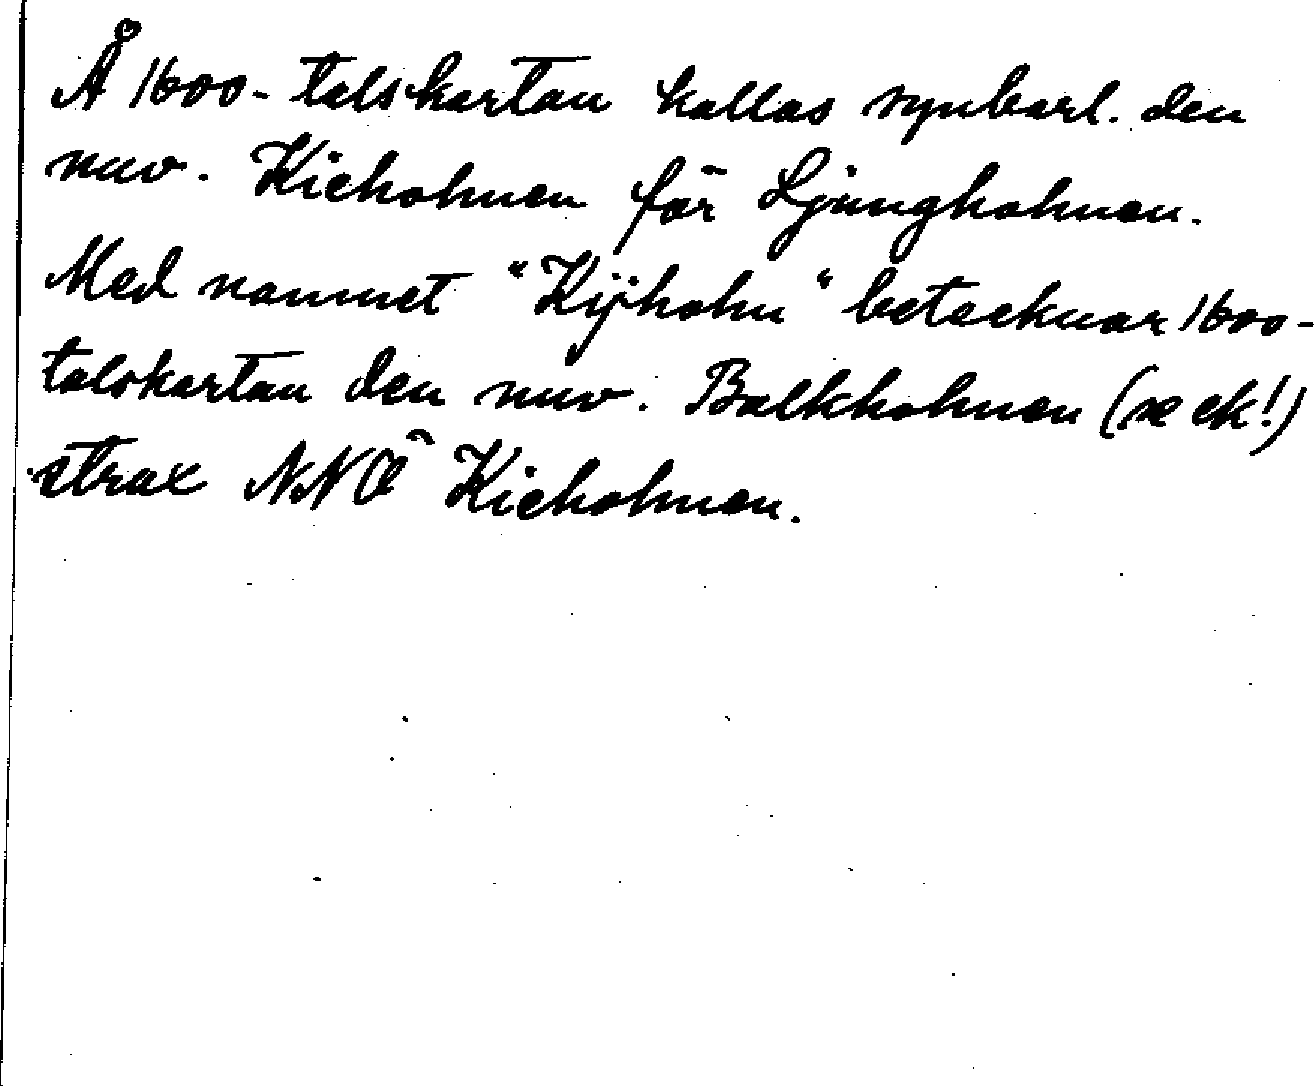 Å 1600-talskartan kallas synbarl. den
nuv. Kieholmen för Ljungholmen.
Med namnet "Kijholm" betecknar 1600-
talskartan den nuv. Balkholmen (se ek!)
strax NNÖ Kieholmen.